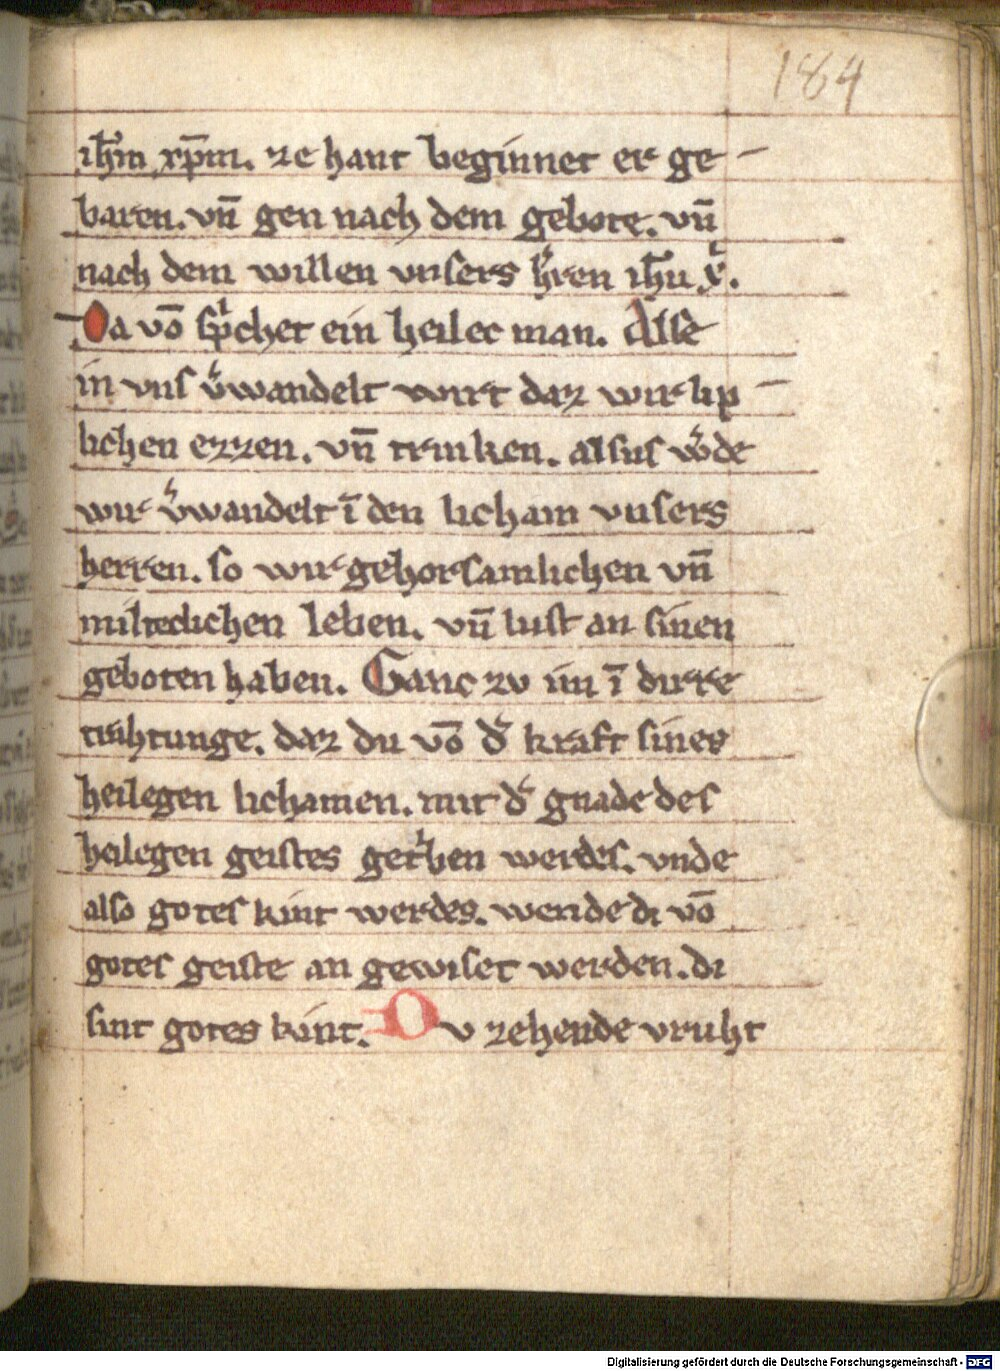 184
ih̅m xp̅m. ze hant beginnet er ge-
baren. vn̅ gen nach dem gebote. vn̅
nach dem willen vnsers h̾ren ih̅u x̾.
Da vo̅ sp̾chet ein heilec man. Alse
in vns v̾wandelt wirt daz wir lip-
lichen ezzen. vn̅ trinken. alsus w̾de
wir v̾wandelt i̅ den licham vnsers
herren. so wir gehorsamlichen vn̅
milteclichen leben. vn̅ lust an sinen
geboten haben. Ganc zv im i̅ dirre
trahtunge. daz du vo̅ d̾ kraft sines
heilegen lichamen. mit d̾ gnade des
heilegen geistes get̾ben werdes. vnde
also gotes kint werdes. wende di vo̅
gotes geiste an gewiset werden. di
sint gotes kint. Dv zehende vruht
Digitalisierung gefördert durch die Deutsche Forschungsgemeinschaft - DFG